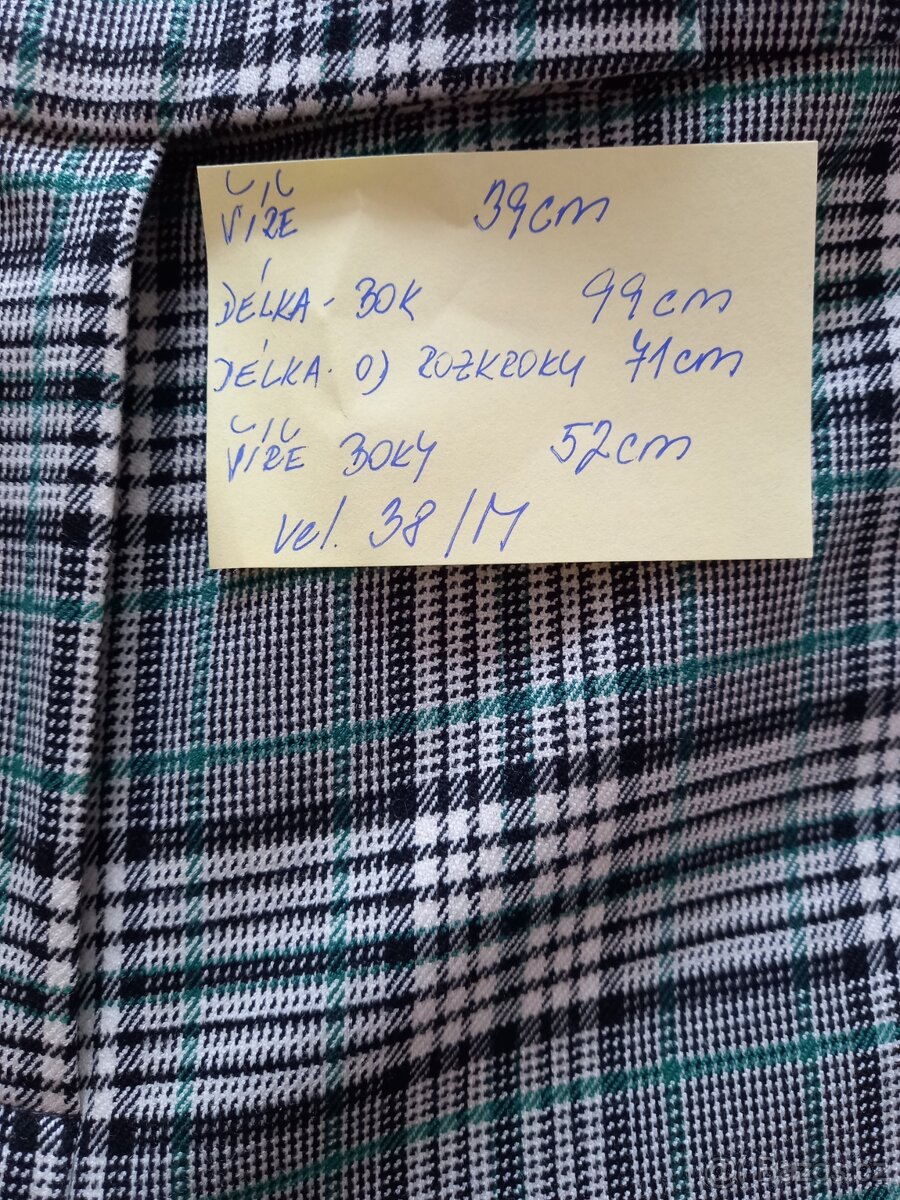 VÍŘE 39cm
DÉLKA - BOK 99cm
DÉLKA. OD ROZKROKU 71cm
ŠÍŘE BOKY 52cm
vel. 38/M
Bazos.cz